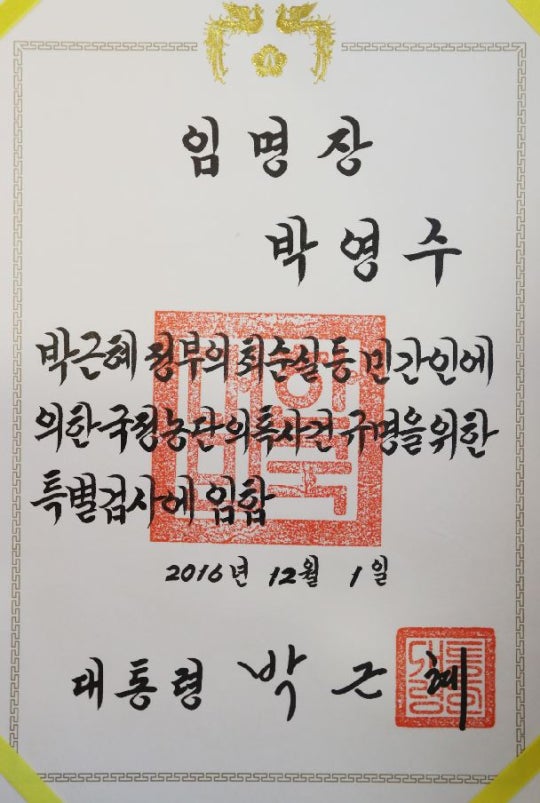 임명장
박영수
박근혜 정부의 최순실 등 민간인에
의한 국정농단 의혹사건 규명을 위한
특별검사에 임함
2016년 12월 1일
대통령 박근혜